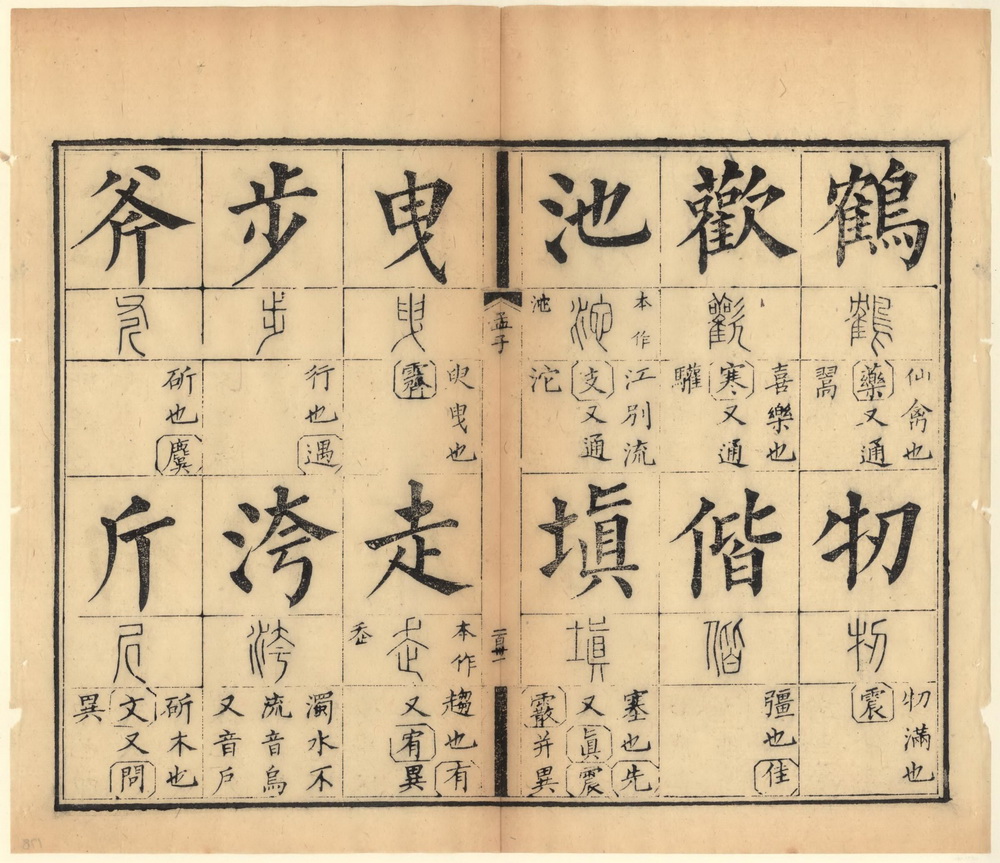 鶴
鶴
仙禽也
藥又通
翯
牣
牣
牣滿也
震
歡
歡
喜樂也
寒又通
驩
偕
偕
彊也佳
池
本作
池
江別流
支又通
沱
塡
塡
塞也先
又眞震
霰并異
孟子
曳
曳
臾曳也
霽
走
本作
走
趨也有
又宥異
步
步
行也遇
洿
洿
濁水不
流音烏
又音戶
斧
斧
斫也麌
斤
斤
斫木也
文又問
異